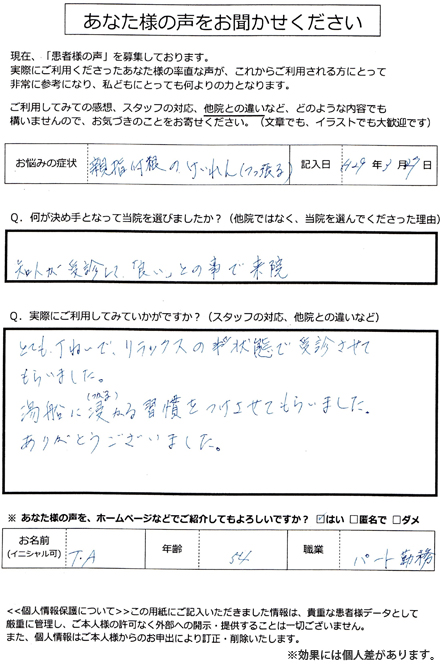 あなた様の声をお聞かせください
現在、「患者様の声」を募集しております。
実際にご利用くださったあなた様の率直な声が、これからご利用される方にとって
非常に参考になり、私どもにとっても何よりの力となります。
ご利用してみての感想、スタッフの対応、他院との違いなど、どのような内容でも
構いませんので、お気づきのことをお寄せください。（文章でも、イラストでも大歓迎です）
お悩みの症状 親指付根のけいれん(つっ張る) 記入日 H29年3月29日
Q．何が決め手となって当院を選びましたか？（他院ではなく、当院を選んでくださった理由）
知人が受診して、「良い」との事で来院
Q．実際にご利用してみていかがですか？（スタッフの対応、他院との違いなど）
とても、ていねいで、リラックスの状態で受診させて
もらいました。
(つかる)
湯船に浸かる習慣をつけさせてもらいました。
ありがとうございました。
※ あなた様の声を、ホームページなどでご紹介してもよろしいですか？ ☑はい □匿名で □ダメ
お名前 (イニシャル可) T.A 年齢 54 職業 パート勤務
<<個人情報保護について>>この用紙にご記入いただきました情報は、貴重な患者様データとして
厳重に管理し、ご本人様の許可なく外部への開示・提供することは一切ございません。
また、個人情報はご本人様からのお申出により訂正・削除いたします。
※効果には個人差があります。